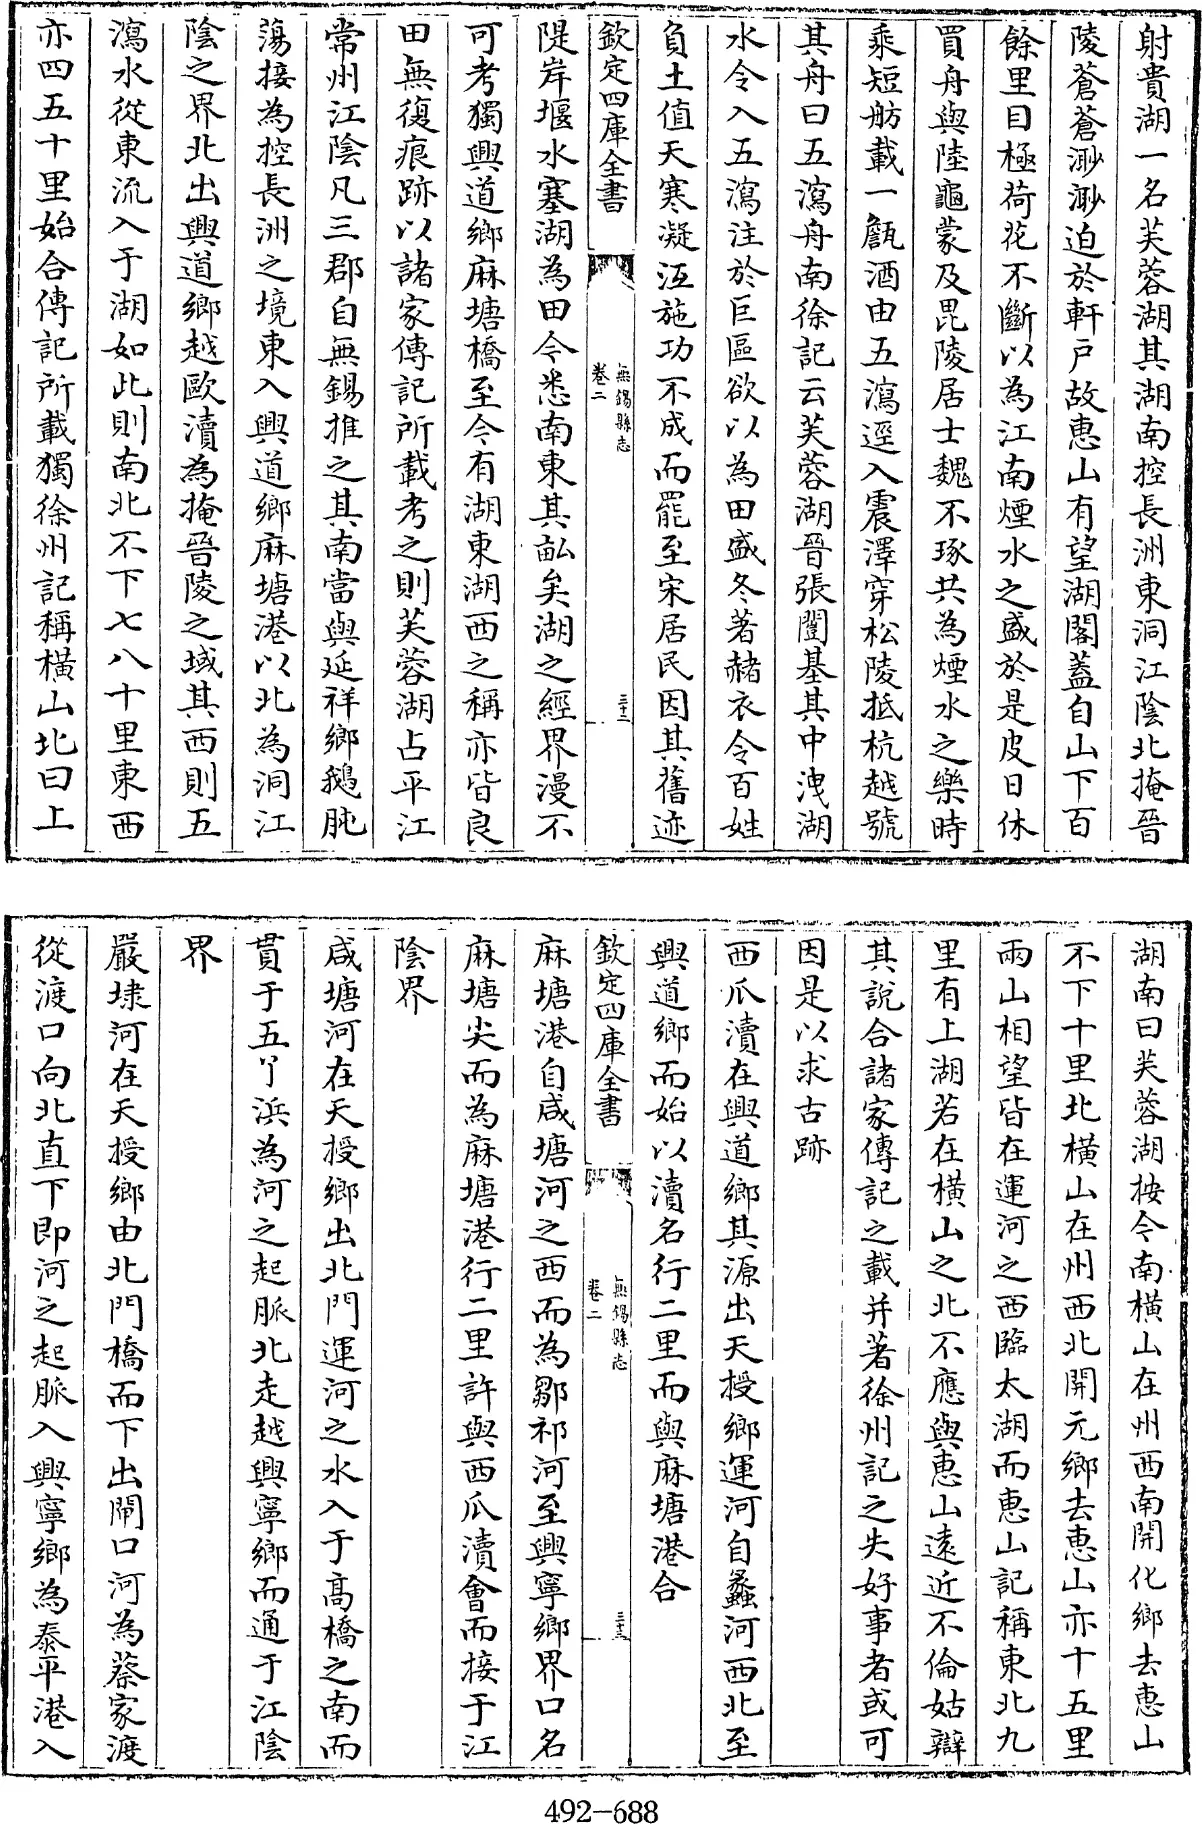 射貴湖一名芙蓉湖其湖南控長洲東洞江陰北掩晉
陵蒼蒼渺渺迫於軒戶故惠山有望湖閣蓋自山下百
餘里目極荷花不斷以為江南煙水之盛於是皮日休
買舟與陸龜蒙及毘陵居士魏不琢共為煙水之樂時
乘短舫載一甔酒由五瀉逕入震澤穿松陵抵杭越號
其舟曰五瀉舟南徐記云芙蓉湖晉張闓基其中洩湖
水令入五瀉注於巨區欲以為田盛冬著赭衣令百姓
負土值天寒凝沍施功不成而罷至宋居民因其舊迹
欽定四庫全書
無錫縣志
卷二
三十二
隄岸堰水塞湖為田今悉南東其畝矣湖之經界漫不
可考獨興道鄉麻塘橋至今有湖東湖西之稱亦皆良
田無復痕跡以諸家傳記所載考之則芙蓉湖占平江
常州江陰凡三郡自無錫推之其南當與延祥鄉鵝肫
蕩接為控長洲之境東入興道鄉麻塘港以北為洞江
陰之界北出興道鄉越歐瀆為掩晉陵之域其西則五
瀉水從東流入于湖如此則南北不下七八十里東西
亦四五十里始合傳記所載獨徐州記稱橫山北曰上
湖南曰芙蓉湖按今南橫山在州西南開化鄉去惠山
不下十里北橫山在州西北開元鄉去惠山亦十五里
兩山相望皆在運河之西臨太湖而惠山記稱東北九
里有上湖若在橫山之北不應與惠山遠近不倫姑辯
其說合諸家傳記之載并著徐州記之失好事者或可
因是以求古跡
西瓜瀆在興道鄉其源出天授鄉運河自蠡河西北至
興道鄉而始以瀆名行二里而與麻塘港合
欽定四庫全書
無錫縣志
卷二
三十三
麻塘港自咸塘河之西而為鄒祁河至興寧鄉界口名
麻塘尖而為麻塘港行二里許與西瓜瀆會而接于江
陰界
咸塘河在天授鄉出北門運河之水入于高橋之南而
貫于五丫浜為河之起脈北走越興寧鄉而通于江陰
界
嚴埭河在天授鄉由北門橋而下出閘口河為蔡家渡
從渡口向北直下即河之起脈入興寧鄉為泰平港入
492-688